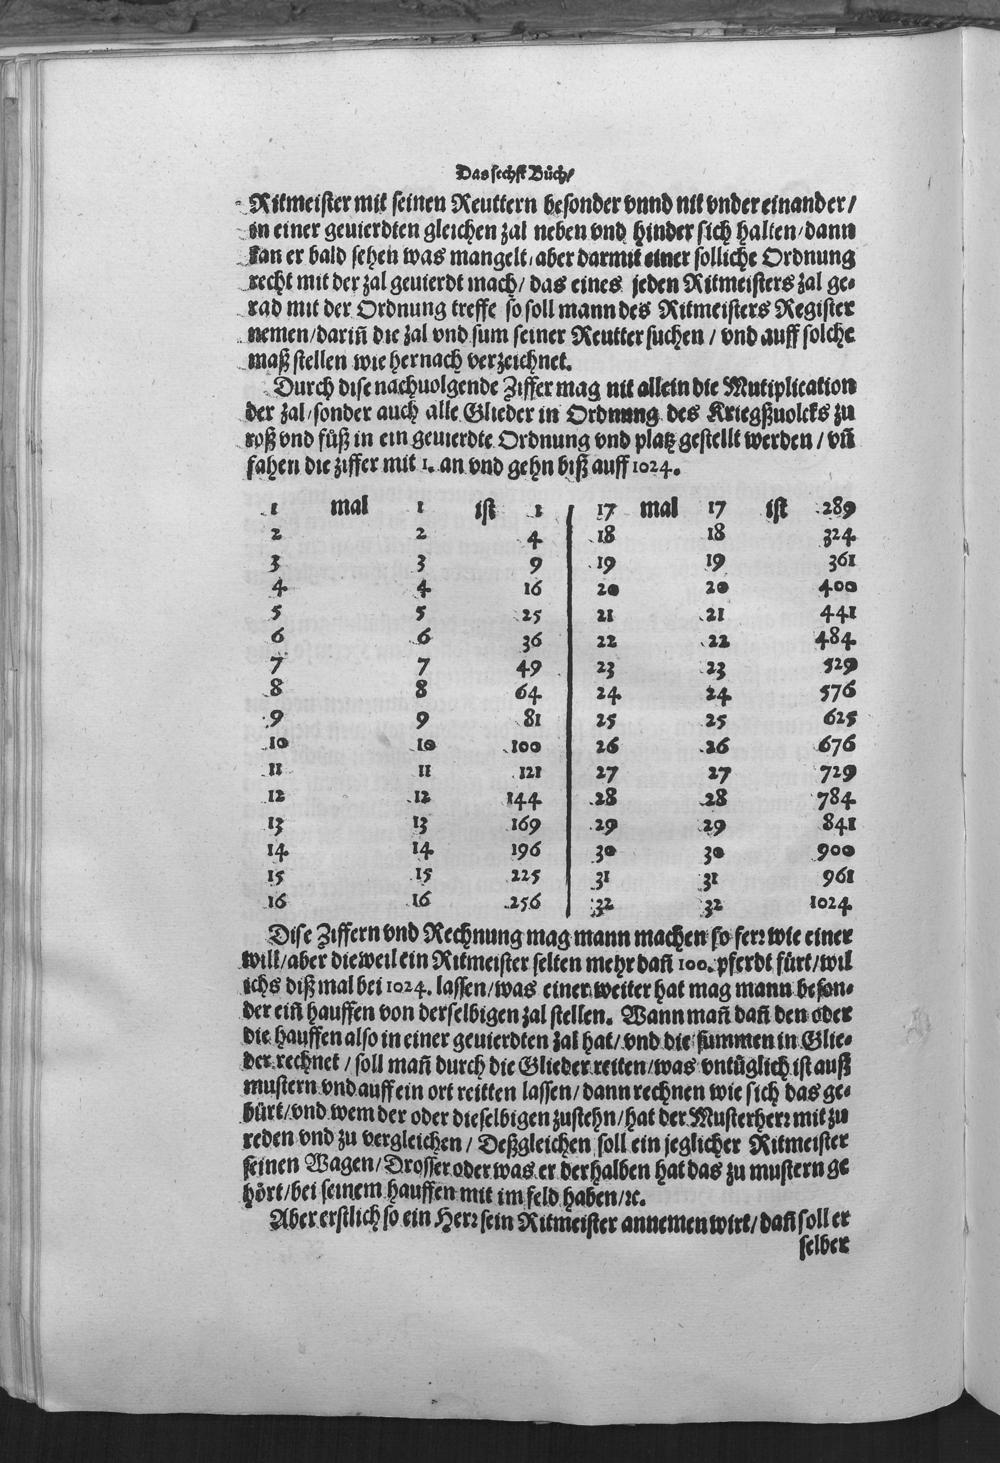 Das sechst Bůch/
Ritmeister mit seinen Reuttern besonder vnnd nit vnder einander/
in einer geuierdten gleichen zal neben vnd hinder sich halten/dann
kan er bald sehen was mangelt/aber darmit einer solliche Ordnung
recht mit der zal geuierdt mach/ das eines jeden Ritmeisters zal ge-
rad mit der Ordnung treffe so soll mann des Ritmeisters Register
nemen/darin̄ die zal vnd sum seiner Reutter suchen / vnd auff solche
maß stellen wie hernach verzeichnet.
Durch dise nachuolgende Ziffer mag nit allein die Mutiplication
der zal/sonder auch alle Glieder in Ordnung des Kriegßuolcks zu
roß vnd fůß in ein geuierdte Ordnung vnd platz gestellt werden / vn̄
fahen die ziffer mit 1. an vnd gehn biß auff 1024.
1 mal 1 ist 1 17 mal 17 ist 289
2 2 4 18 18 324
3 3 9 19 19 361
4 4 16 20 20 400
5 5 25 21 21 441
6 6 36 22 22 484
7 7 49 23 23 529
8 8 64 24 24 576
9 9 81 25 25 625
10 10 100 26 26 676
11 11 121 27 27 729
12 12 144 28 28 784
13 13 169 29 29 841
14 14 196 30 30 900
15 15 225 31 31 961
16 16 256 32 32 1024
Dise Ziffern vnd Rechnung mag mann machen so ferꝛ wie einer
will/aber dieweil ein Ritmeister selten mehr dan̄ 100. pferdt fürt/wil
ichs diß mal bei 1024. lassen/was einer weiter hat mag mann beson-
der ein̄ hauffen von derselbigen zal stellen. Wann man̄ dan̄ den oder
die hauffen also in einer geuierdten zal hat/vnd die summen in Glie-
der rechnet / soll man̄ durch die Glieder reiten/was vntüglich ist auß
mustern vnd auff ein ort reitten lassen/dann rechnen wie sich das ge-
bürt/vnd wem der oder dieselbigen zustehn/hat der Musterherꝛ mit zu
reden vnd zu vergleichen/ Deßgleichen soll ein jeglicher Ritmeister
seinen Wagen/Drosser oder was er derhalben hat das zu mustern ge
hört/bei seinem hauffen mit im feld haben/ꝛc.
Aber erstlich so ein Herꝛ sein Ritmeister annemen wirt/dan̄ soll er
selber